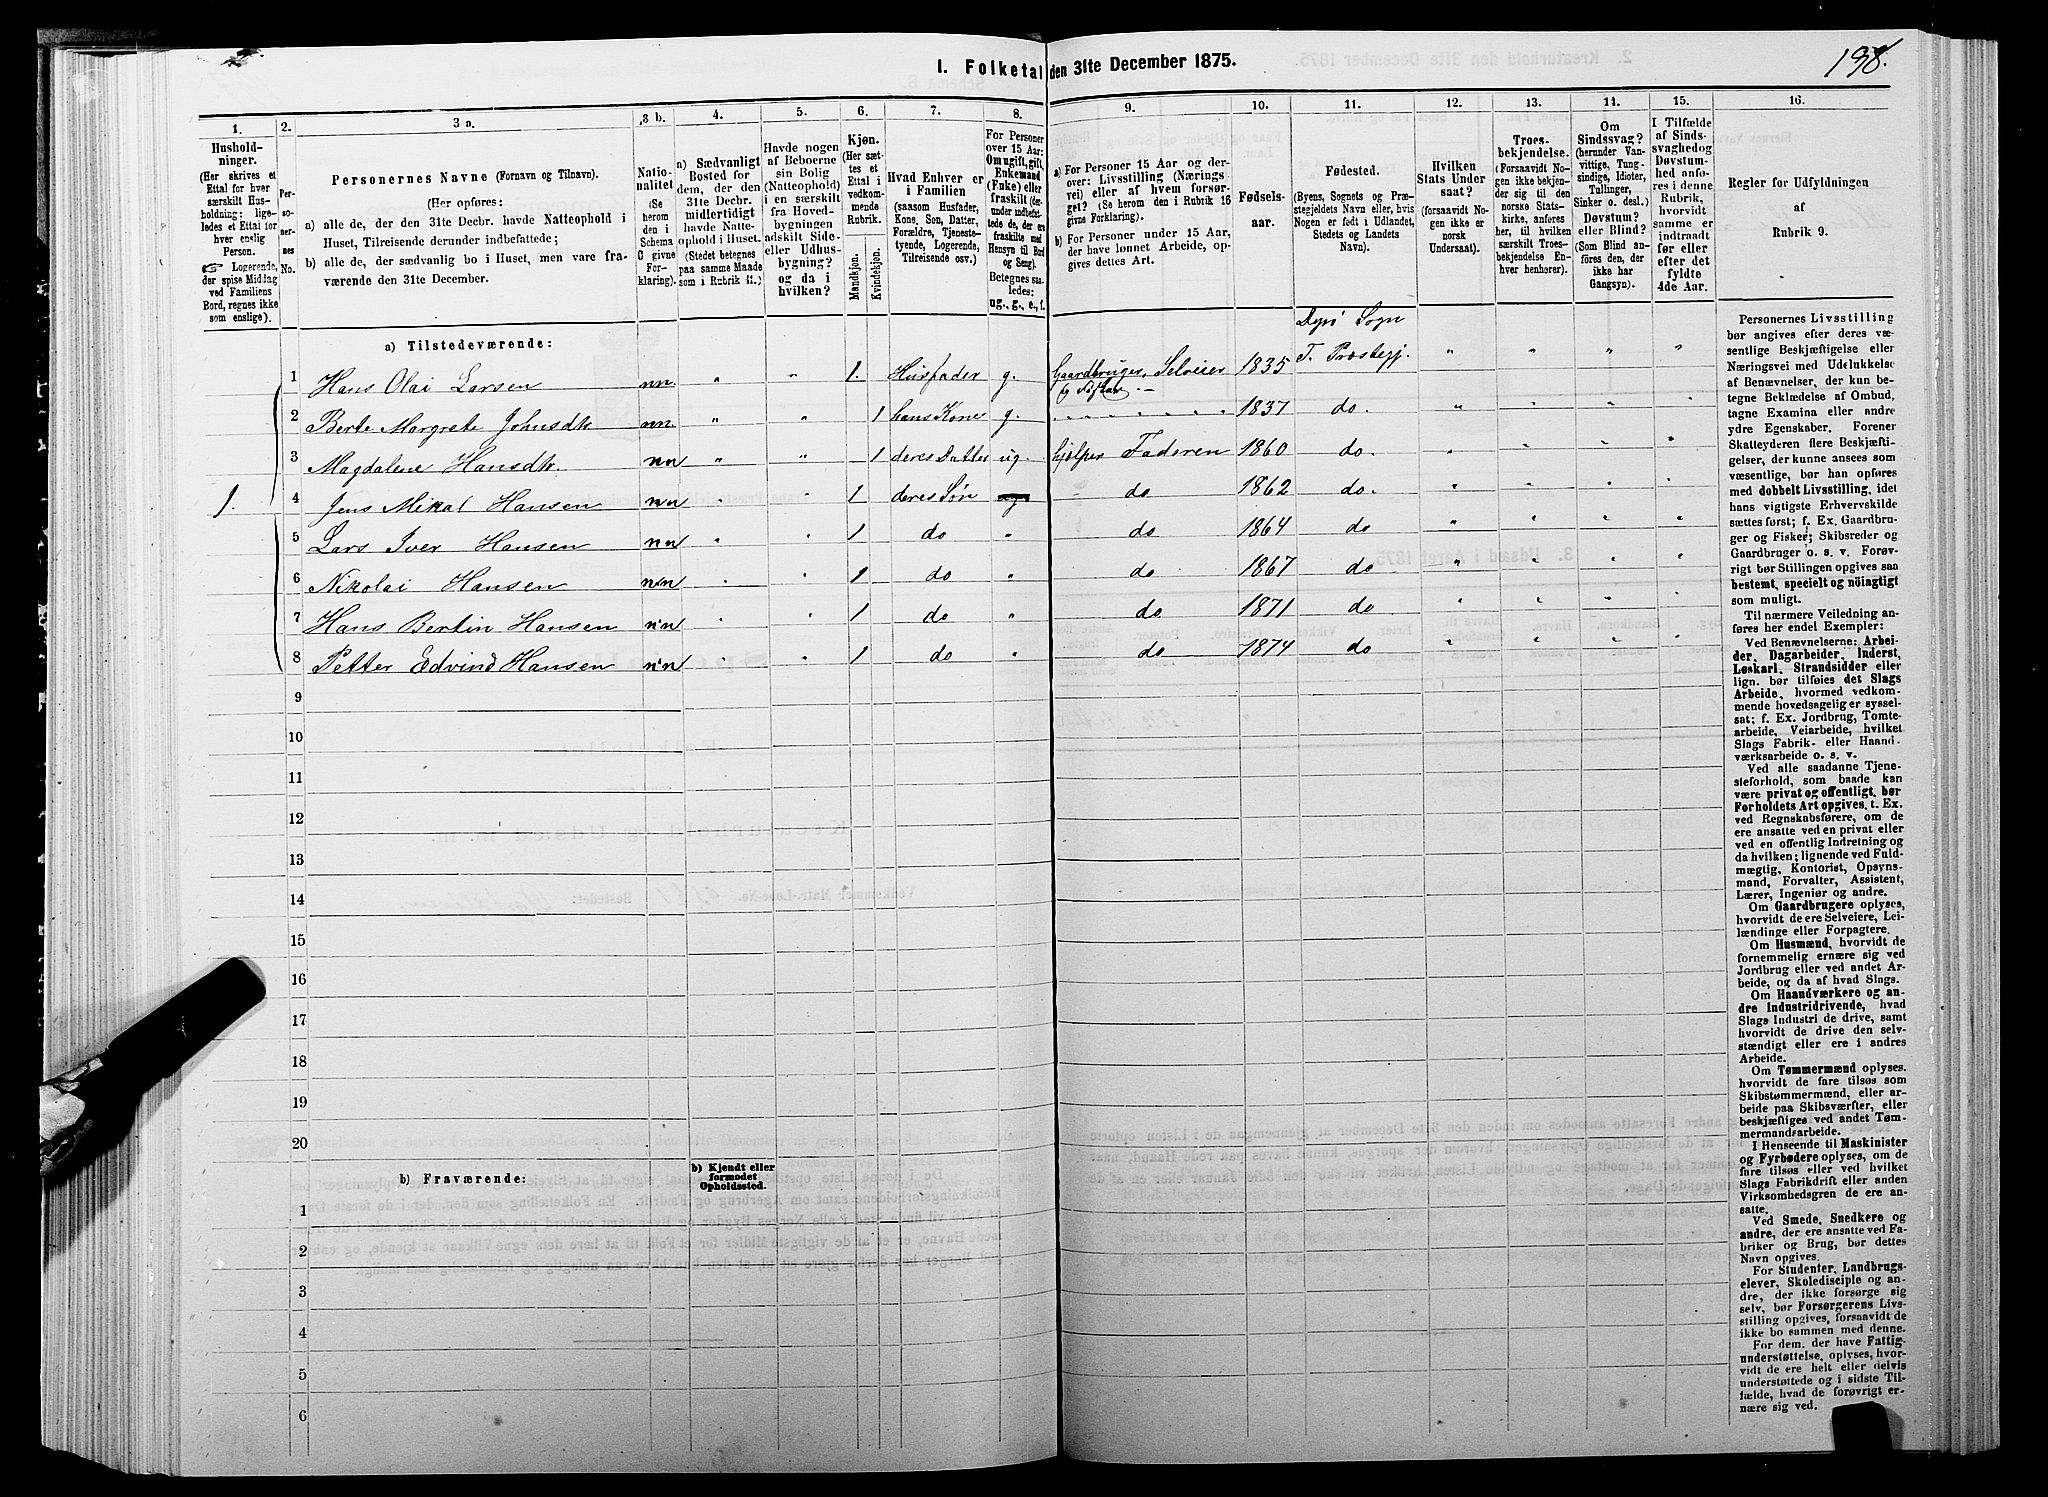 138.
1. Folketal den 31te December 1875.
1.
2.
3 a.
3 b.
4.
5.
6.
7.
8.
9.
10.
11.
12.
13.
14.
15.
16.
Hushold-
ninger.
(Her skrives et
Ettal for hver
særskilt Hus-
holdning; lige-
ledes et Ettal for
hver enslig
Person.
☞ Logerende,
der spise Middag
ved Familiens
Bord, regnes ikke
som enslige).
Per-
so-
ner-
nes
No.
Personernes Navne (Fornavn og Tilnavn).
(Her opføres:
a) alle de, der den 31te Decbr. havde Natteophold i
Huset, Tilreisende derunder indbefattede;
b) alle de, der sædvanlig bo i Huset, men vare fra-
værende den 31te December.
Natio-
nalitet
(Se
herom
den i
Schema
C givne
For-
klaring).
a) Sædvanligt
Bosted for
dem, der den
31te Decbr.
midlertidigt
havde Natte-
ophold i Huset.
(Stedet betegnes
paa samme Maade
som i Rubrik 11.)
Havde nogen
af Beboerne
sin Bolig
(Natteophold)
i en særskilt
fra Hoved-
bygningen
adskilt Side-
eller Udhus-
bygning?
og da i
hvilken?
Kjøn.
(Her sæt-
tes et
Ettal i
vedkom-
mende
Rubrik.
Mandkjøn.
Kvindekjøn.
Hvad Enhver er
i Familien
(saasom Husfader,
Kone, Søn, Datter,
Forældre, Tjeneste-
tyende, Logerende,
Tilreisende osv.)
For Personer
over 15 Aar:
Om ugift, gift,
Enkemand
(Enke) eller
fraskilt (der-
under indbefat-
tede de, der ere
fraskilte med
Hensyn til Bord
og Seng).
Betegnes saa-
ledes:
ug., g., e., f.
a) For Personer 15 Aar og der-
over: Livsstilling (Nærings-
vei) eller af hvem forsør-
get? (Se herom den i Rubrik 16
givne Forklaring).
b) For Personer under 15 Aar,
der have lønnet Arbeide, op-
gives dettes Art.
Fødsels-
aar.
Fødested.
(Byens, Sognets og Præ-
stegjeldets Navn eller, hvis
Nogen er født i Udlandet,
Stedets og Landets
Navn).
Hvilken
Stats Under
saat?
(forsaavidt No-
gen ikke er
norsk
Undersaat).
Troes-
bekjendelse.
(Forsaavidt No-
gen ikke bekjen-
der sig til den
norske Stats-
kirke, anføres
her, til hvilken
særskilt Troes-
bekjendelse En-
hver henhører).
Om
Sindssvag?
(herunder Van-
vittige, Tung-
sindige, Idioter,
Tullinger,
Sinker o. desl.)
Døvstum?
eller Blind?
(Som Blind an-
føres den, der
ikke har
Gangsyn).
I Tilfælde
af Sinds-
svaghed og
Døvstum-
hed anfø-
res i denne
Rubrik,
hvorvidt
samme er
indtraadt
før eller
efter det
fyldte
4de Aar.
Regler for Udfyldningen
af
Rubrik 9.
a) Tilstedeværende:
Dyrø Sogn
1 Hans Olai Larsen nn. " " 1. Husfader g. Gaardbruger, Selveier 1835 T. Præstegj. " " " "
2 Berte Margrete Johnsdtr nn. " " 1 hans Kone g. " 1837 do. " " " "
3 Magdalene Hansdtr. nn " " 1 deres Datter ug. hjælper Faderen 1860 do. " " " "
1. 4 Jens Mikal Hansen nn " " 1 deres Søn do 1862 do. " " " "
5 Lars Iver Hansen nn " " 1 do " do 1864 do " " " "
6 Nikolai Hansen nn " " 1 do " do 1867 do " " " "
7 Hans Bertin Hansen nn " " 1 do " do 1871 do " " " "
8 Petter Edvind Hansen nn " " 1 do " do 1874 do " " " "
9
10
11
12
13
14
15
16
17
18
19
20
b) Fraværende:
b) Kjendt eller
formodet
Opholdssted.
1
2
3
4
5
6
Personernes Livsstilling
bør angives efter deres væ-
sentlige Beskjæftigelse eller
Næringsvei med Udelukkelse
af Benævnelser, der kun be-
tegne Beklædelse af Ombud,
tagne Examina eller andre
ydre Egenskaber. Forener
Skatteyderen flere Beskjæfti-
gelser, der kunne ansees som
væsentlige, bør han opføres
med dobbelt Livsstilling, idet
hans vigtigste Erhvervskilde
sættes først; f. Ex. Gaardbru-
ger og Fisker; Skibsreder og
Gaardbruger o. s. v. Forøv-
rigt bør Stillingen opgives saa
bestemt, specielt og nöiagtigt
som muligt.
Til nærmere Veiledning an-
føres her endel Exempler:
Ved Benævnelserne: Arbei-
der, Dagarbeider, Inderst,
Løskarl, Strandsidder eller
lign. bør tilføies det Slags
Arbeide, hvormed vedkom-
mende hovedsagelig er syssel-
sat; f. Ex. Jordbrug, Tomte-
arbeide, Veiarbeide, hvilket
Slags Fabrik- eller Haand-
værksarbeide o. s. v.
Ved alle saadanne Tjene-
steforhold, som baade kan
være privat og offentligt, bør
Forholdets Art opgives, t. Ex.
ved Regnskabsførere, om de
ere ansatte ved en privat eller
ved en offentlig Indretning og
da hvilken; lignende ved Fuld-
mægtig, Kontorist, Opsyns-
mand, Forvalter, Assistent,
Lærer, Ingeniør og andre.
Om Gaardbrugere oplyses,
hvorvidt de ere Selveiere, Lei-
lændinge eller Forpagtere.
Om Husmænd, hvorvidt de
fornemmelig ernære sig ved
Jordbrug eller ved andet Ar-
beide, og da af hvad Slags.
Om Haandværkere og an-
dre Industridrivende, hvad
Slags Industri de drive, samt
hvorvidt de drive den selv-
stændigt eller ere i andres
Arbeide.
Om Tømmermænd oplyses.
hvorvidt de fare tilsøs som
Skibstømmermænd, eller ar-
beide paa Skibsværfter, eller
beskjæftiges ved andet Tøm-
mermandsarbeide.
I Henseende til Maskinister
og Fyrbødere oplyses, om de
fare tilsøs eller ved hvilket
Slags Fabrikdrift eller anden
Virksomhedsgren de ere an-
satte.
Ved Smede, Snedkere og
andre, der ere ansatte ved Fa-
briker og Brug, bør dettes
Navn opgives.
For Studenter, Landbrugs-
elever, Skoledisciple og an-
dre, der ikke forsørge sig
selv, bør Forsørgerens Livs-
stilling opgives, forsaavidt de
ikke bo sammen med denne.
For dem, der have Fattig-
understøttelse, oplyses, hvor-
vidt de ere helt eller delvis
understøttede og i sidste Til-
fælde, hvad de forøvrigt er-
nære sig ved.